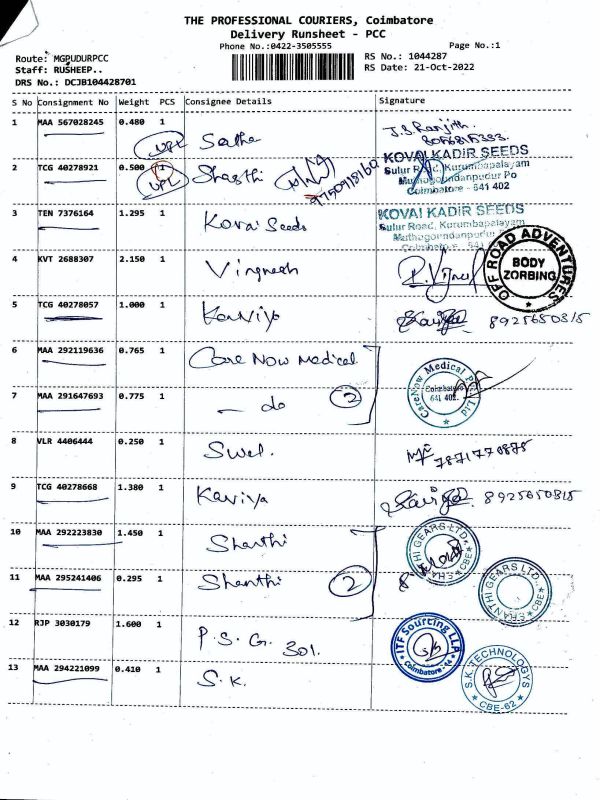 THE PROFESSIONAL COURIERS, Coimbatore
Delivery Runsheet - PCC
Phone No.:0422-3505555
Page No.:1
Route: MGPUDURPCC
RS No.: 1044287
Staff: RUSHEEP..
RS Date: 21-Oct-2022
DRS No.: DCJB104428701
S No Consignment No Weight PCS Consignee Details Signature
1 MAA 567028245 0.480 1
UPL
2 TCG 40278921 0.500 1 Shanthi
UPL
KOVAI KADIR SEEDS
Sulur Road, Kurumbapalayam
Muthogoundanpudur Po
Coimbatore - 641 402
3 TEN 7376164 1.295 1 Kovai Seeds
KOVAI KADIR SEEDS
Sulur Road, Kurumbapalayam
Muthogoundanpudur Po
Coimbatore - 641
4 KVT 2688307 2.150 1 Vignesh
OFF ROAD ADVENTURES
BODY
ZORBING
5 TCG 40278057 1.000 1 Kaviya 8925650815
6 MAA 292119636 0.765 1 Care Now Medical
7 MAA 291647693 0.775 1 - do 2
CareNow Medical Pvt. Ltd
Coimbatore
641 402.
8 VLR 4406444 0.250 1 7871770875
9 TCG 40278668 1.380 1 Kaviya 8925650815
10 MAA 292223830 1.450 1 Shanthi
11 MAA 295241406 0.295 1 Shanthi 2
SHANTHI GEARS LTD.
CBE
SHANTHI GEARS LTD.
CBE
12 RJP 3030179 1.600 1 P.S.G. 301.
ITF Sourcing LLP
Coimbatore-14
13 MAA 294221099 0.410 1 S.K.
S.K. TECHNOLOGYS
CBE-62